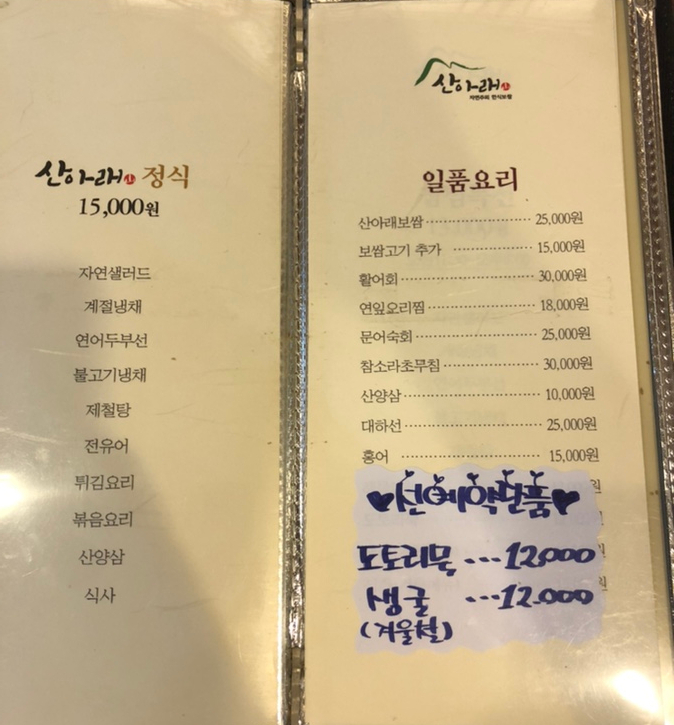 산아래 산 정식
15,000원
자연샐러드
계절냉채
연어두부선
불고기냉채
제철탕
전유어
튀김요리
볶음요리
산양삼
식사
산아래 산
자연수리 한식보쌈
일품요리
산아래보쌈 ················ 25,000원
보쌈고기 추가 ············ 15,000원
활어회 ····················· 30,000원
연잎오리찜 ················ 18,000원
문어숙회 ··················· 25,000원
참소라초무침 ············· 30,000원
산양삼 ····················· 10,000원
대하선 ····················· 25,000원
홍어 ························ 15,000원
원
♥선예약단품♥
도토리묵 ··· 12,000
생굴 ··· 12.000
(겨울철)